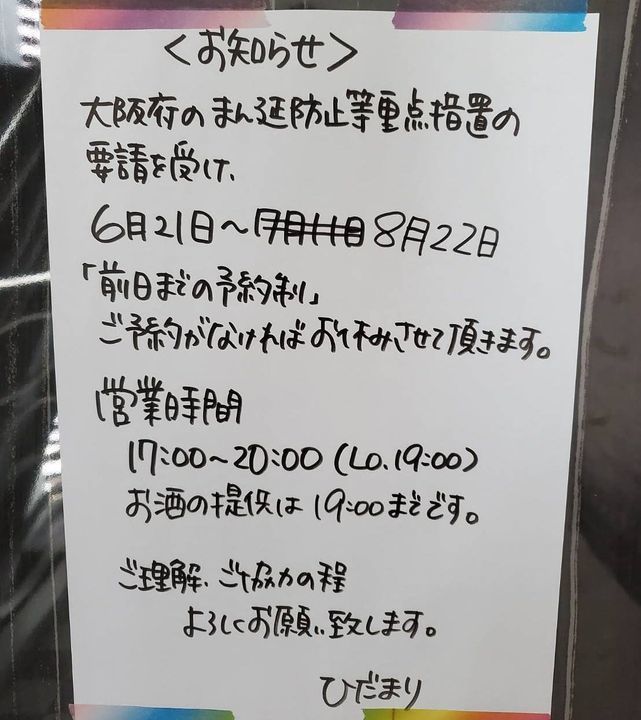 <お知らせ>
大阪府のまん延防止等重点措置の
要請を受け、
6月21日〜7月11日8月22日
「前日までの予約制」
ご予約がなければお休みさせて頂きます。
営業時間
17:00〜20:00(Lo.19:00)
お酒の提供は19:00までです。
ご理解、ご協力の程
よろしくお願い致します。
ひだまり